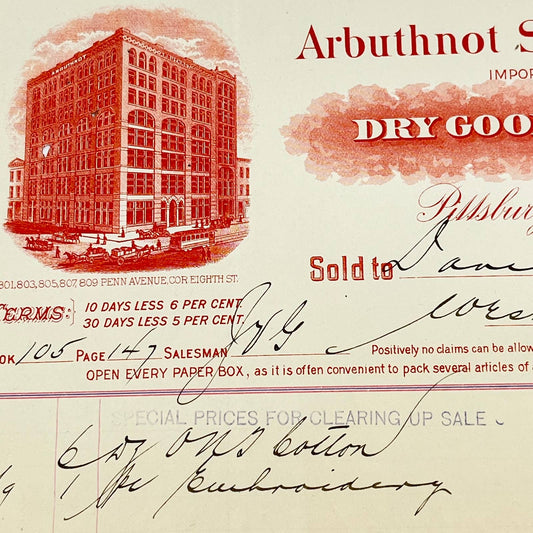 Arbuthnot S
IMPOR
ARBUTHNOT
DRY GOO
Pittsbur
801, 803, 805, 807, 809 PENN AVENUE, COR. EIGHTH ST.
Sold to Dave
TERMS: 10 DAYS LESS 6 PER CENT.
30 DAYS LESS 5 PER CENT.
Wes
OOK 105 PAGE 147 SALESMAN
Positively no claims can be allow
OPEN EVERY PAPER BOX, as it is often convenient to pack several articles of a
SPECIAL PRICES FOR CLEARING UP SALE
6 Dz ONT Cotton
9 1 Pc Embroidery